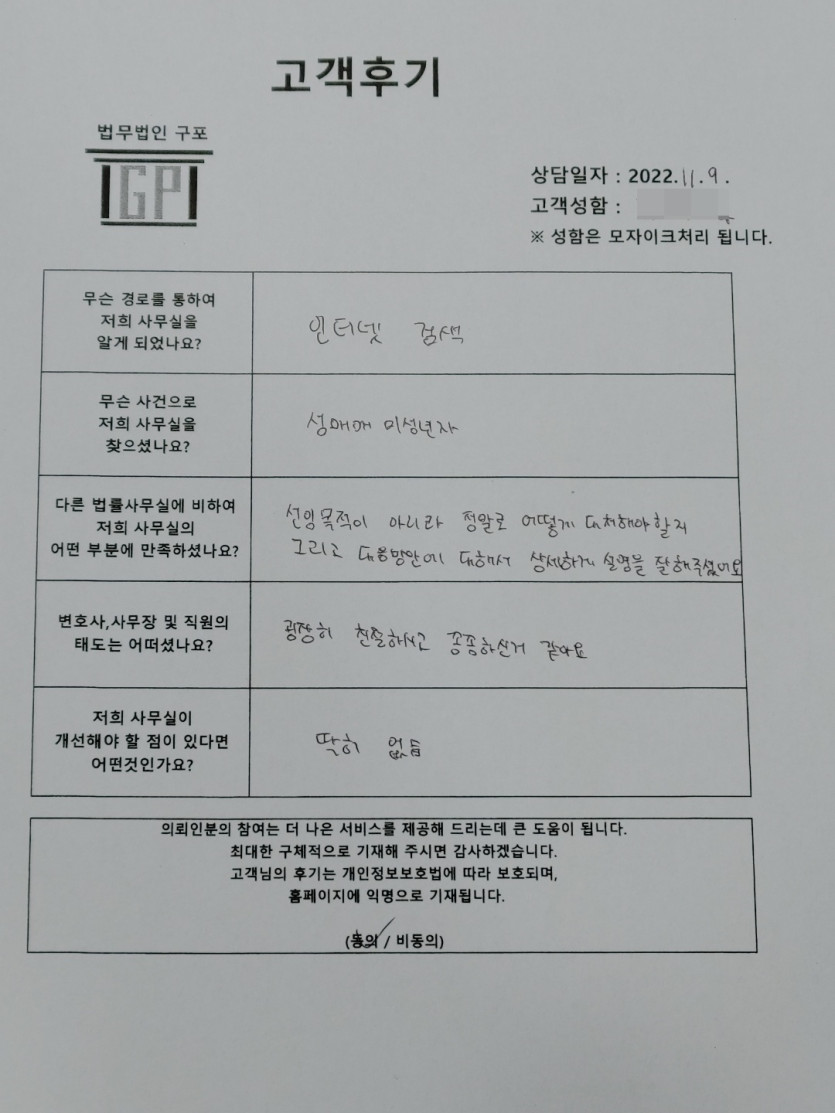 고객후기
법무법인 구포
IGPI
상담일자 : 2022.11.9.
고객성함 :
※ 성함은 모자이크처리 됩니다.
무슨 경로를 통하여
저희 사무실을
알게 되었나요?
인터넷 검색
무슨 사건으로
저희 사무실을
찾으셨나요?
성매매 미성년자
다른 법률사무실에 비하여
저희 사무실의
어떤 부분에 만족하셨나요?
선임목적이 아니라 정말로 어떻게 대처해야할지
그리고 대응방안에 대해서 상세하게 설명을 잘해주셨어요
변호사,사무장 및 직원의
태도는 어떠셨나요?
굉장히 친절하시고 꼼꼼하신거 같아요
저희 사무실이
개선해야 할 점이 있다면
어떤것인가요?
딱히 없음
의뢰인분의 참여는 더 나은 서비스를 제공해 드리는데 큰 도움이 됩니다.
최대한 구체적으로 기재해 주시면 감사하겠습니다.
고객님의 후기는 개인정보보호법에 따라 보호되며,
홈페이지에 익명으로 기재됩니다.
(동의 / 비동의)